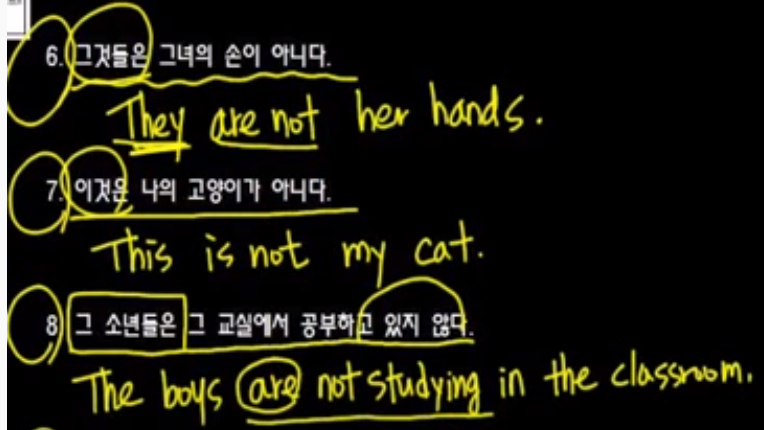 6. 그것들은 그녀의 손이 아니다.
They are not her hands.
7. 이것은 나의 고양이가 아니다.
This is not my cat.
8 그 소년들은 그 교실에서 공부하고 있지 않다.
The boys are not studying in the classroom.